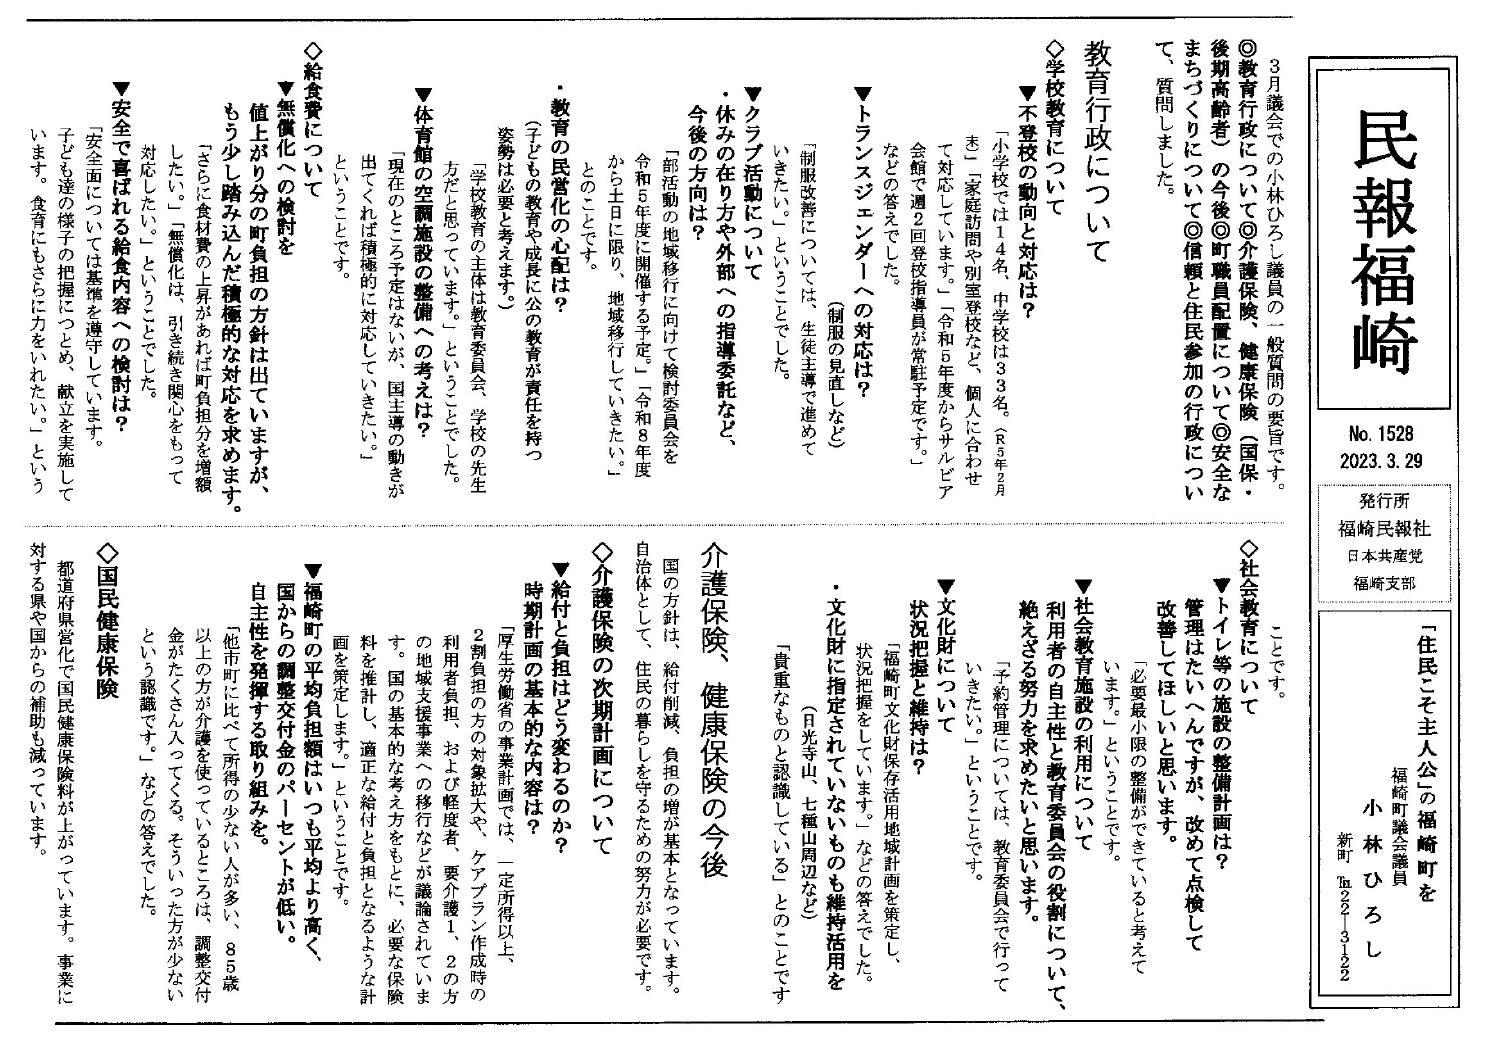 民報福崎
No. 1528
2023. 3. 29
発行所
福崎民報社
日本共産党
福崎支部
「住民こそ主人公」の福崎町を
福崎町議会議員
小林ひろし
新町 ℡22―3122
3月議会での小林ひろし議員の一般質問の要旨です。
◎教育行政について◎介護保険、健康保険（国保・
後期高齢者）の今後◎町職員配置について◎安全な
まちづくりについて◎信頼と住民参加の行政につい
て、質問しました。
教育行政について
◇学校教育について
▼不登校の動向と対応は？
「小学校では14名、中学校は33名。（R5年2月
末）「家庭訪問や別室登校など、個人に合わせ
て対応しています。」「令和5年度からサルビア
会館で週2回登校指導員が常駐予定です。」
などの答えでした。
▼トランスジェンダーへの対応は？
（制服の見直しなど）
「制服改善については、生徒主導で進めて
いきたい。」ということでした。
▼クラブ活動について
・休みの在り方や外部への指導委託など、
今後の方向は？
「部活動の地域移行に向けて検討委員会を
令和5年度に開催する予定。」「令和8年度
から土日に限り、地域移行していきたい。」
とのことです。
・教育の民営化の心配は？
（子どもの教育や成長に公の教育が責任を持つ
姿勢は必要と考えます。）
「学校教育の主体は教育委員会、学校の先生
方だと思っています。」ということでした。
▼体育館の空調施設の整備への考えは？
「現在のところ予定はないが、国主導の動きが
出てくれば積極的に対応していきたい。」
ということです。
◇給食費について
▼無償化への検討を
値上がり分の町負担の方針は出ていますが、
もう少し踏み込んだ積極的な対応を求めます。
「さらに食材費の上昇があれば町負担分を増額
したい。」「無償化は、引き続き関心をもって
対応したい。」ということでした。
▼安全で喜ばれる給食内容への検討は？
「安全面については基準を遵守しています。
子ども達の様子の把握につとめ、献立を実施して
います。食育にもさらに力をいれたい。」という
ことです。
◇社会教育について
▼トイレ等の施設の整備計画は？
管理はたいへんですが、改めて点検して
改善してほしいと思います。
「必要最小限の整備ができていると考えて
います。」ということです。
▼社会教育施設の利用について
利用者の自主性と教育委員会の役割について、
絶えざる努力を求めたいと思います。
「予約管理については、教育委員会で行って
いきたい。」ということです。
▼文化財について
状況把握と維持は？
「福崎町文化財保存活用地域計画を策定し、
状況把握をしています。」などの答えでした。
・文化財に指定されていないものも維持活用を
（日光寺山、七種山周辺など）
「貴重なものと認識している」とのことです
介護保険、健康保険の今後
国の方針は、給付削減、負担の増が基本となっています。
自治体として、住民の暮らしを守るための努力が必要です。
◇介護保険の次期計画について
▼給付と負担はどう変わるのか？
時期計画の基本的な内容は？
「厚生労働省の事業計画では、一定所得以上、
2割負担の方の対象拡大や、ケアプラン作成時の
利用者負担、および軽度者、要介護1、2の方
の地域支援事業への移行などが議論されていま
す。国の基本的な考え方をもとに、必要な保険
料を推計し、適正な給付と負担となるような計
画を策定します。」ということです。
▼福崎町の平均負担額はいつも平均より高く、
国からの調整交付金のパーセントが低い。
自主性を発揮する取り組みを。
「他市町に比べて所得の少ない人が多い、85歳
以上の方が介護を使っているところは、調整交付
金がたくさん入ってくる。そういった方が少ない
という認識です。」などの答えでした。
◇国民健康保険
都道府県営化で国民健康保険料が上がっています。事業に
対する県や国からの補助も減っています。